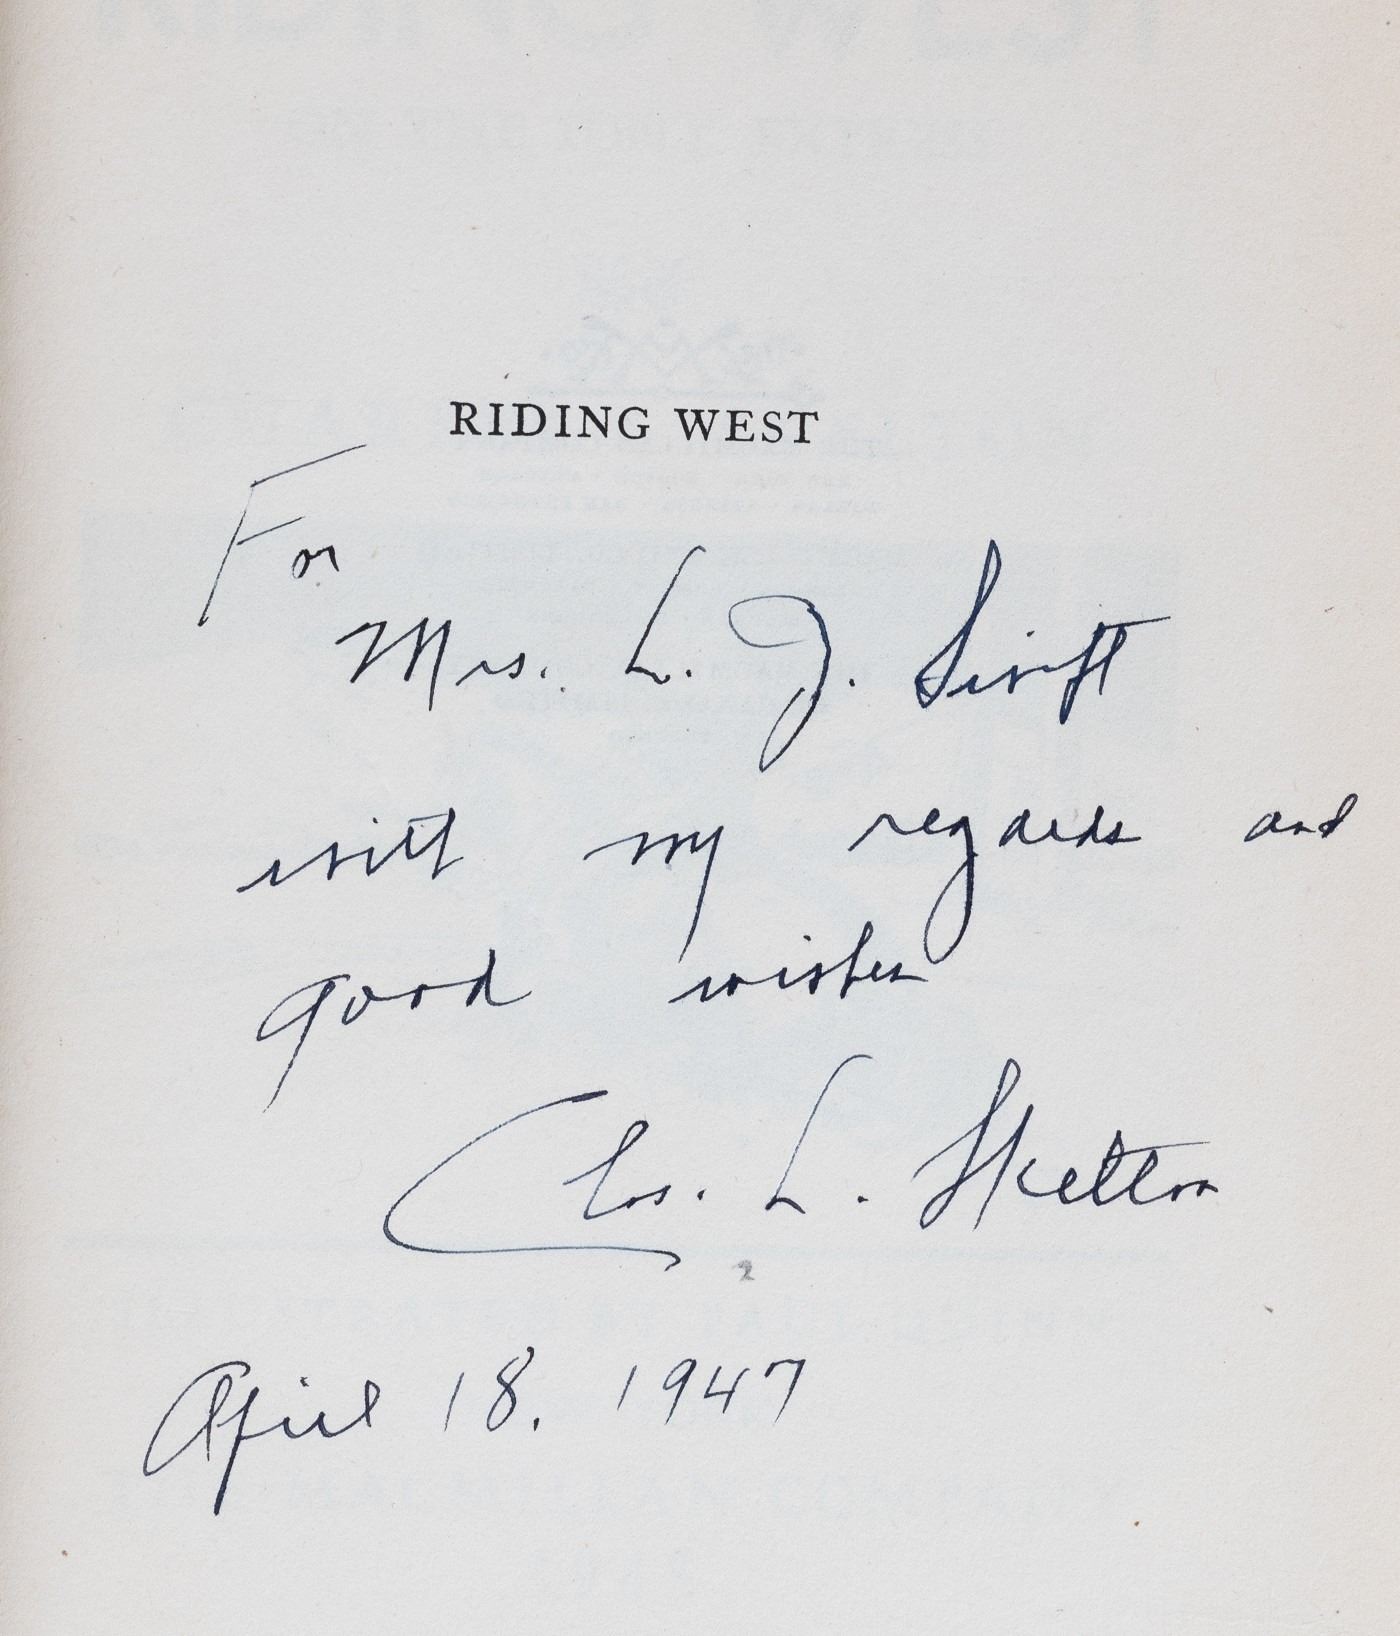 RIDING WEST
For
Mrs. L. J. Swift
with my regards and
good wishes
Chas. L. Skelton
2
April 18, 1947